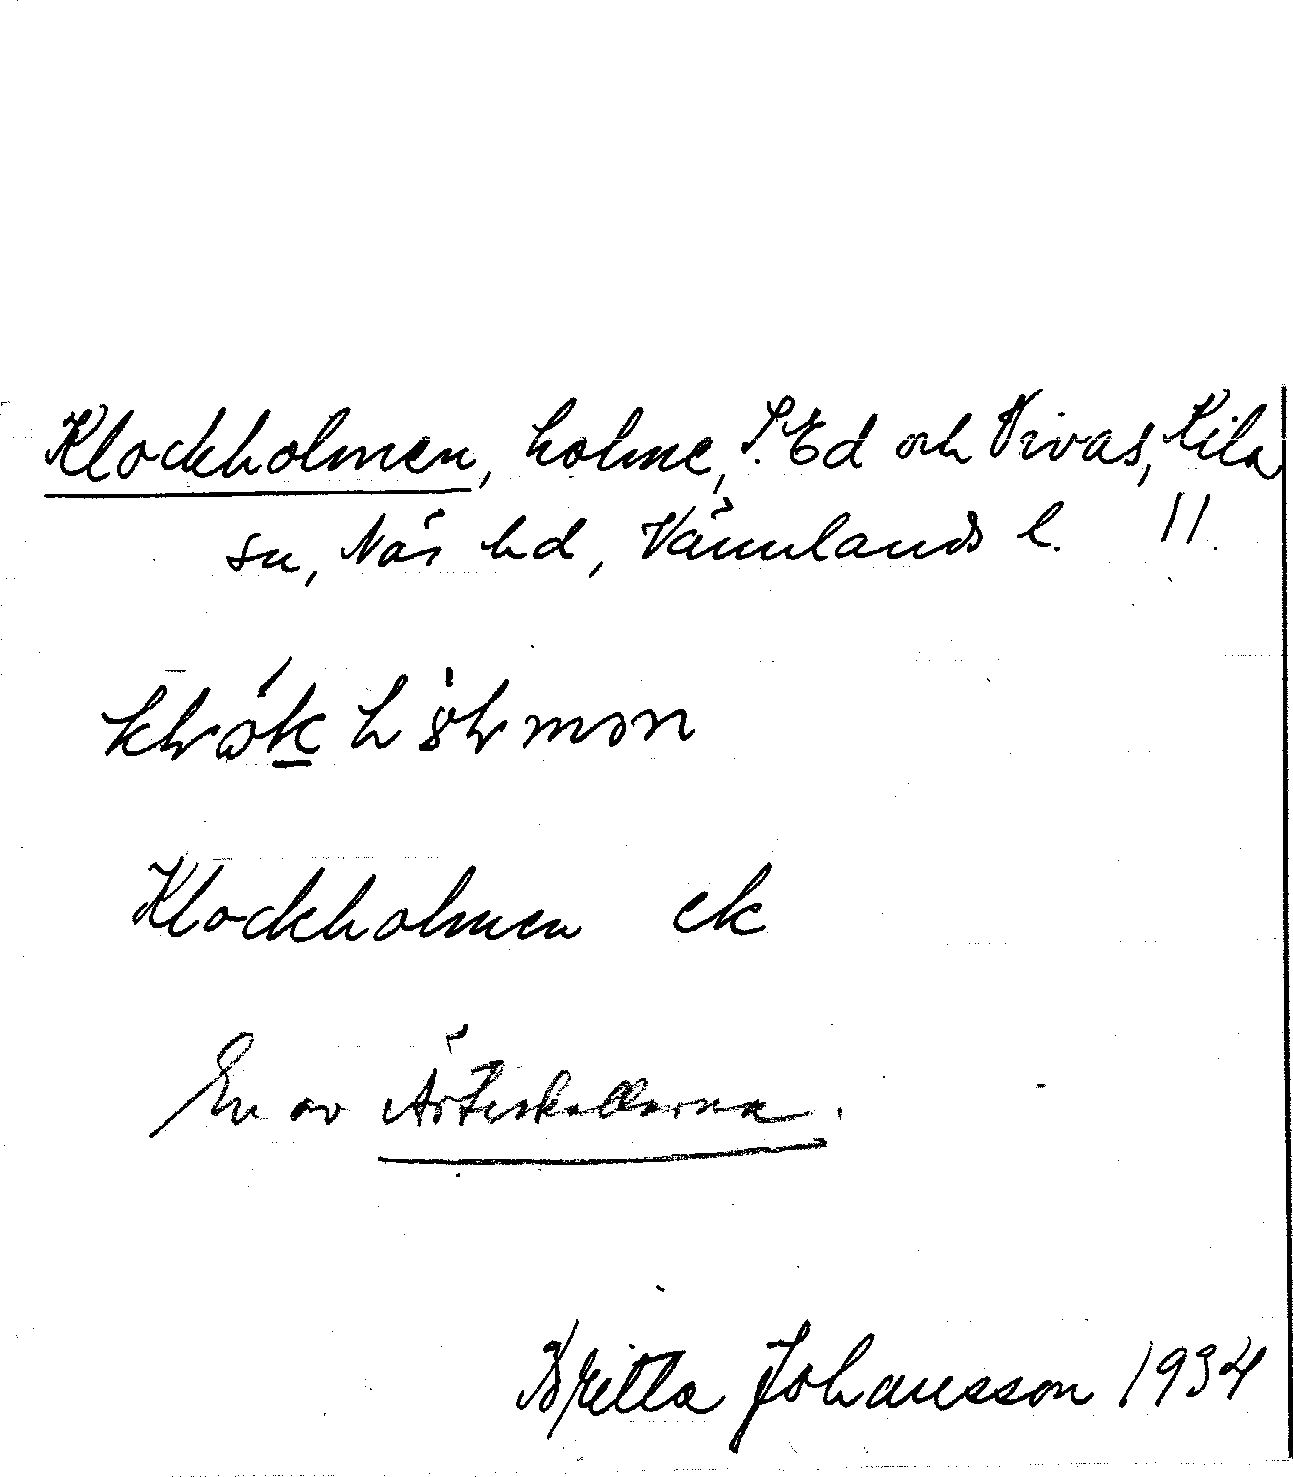 Klockholmen, holme, S. Ed och Vivas, Kila
sn, Näs hd, Värmlands l. 11.
Klockholmen ek
En av Ärteskallarna.
Britta Johansson 1934